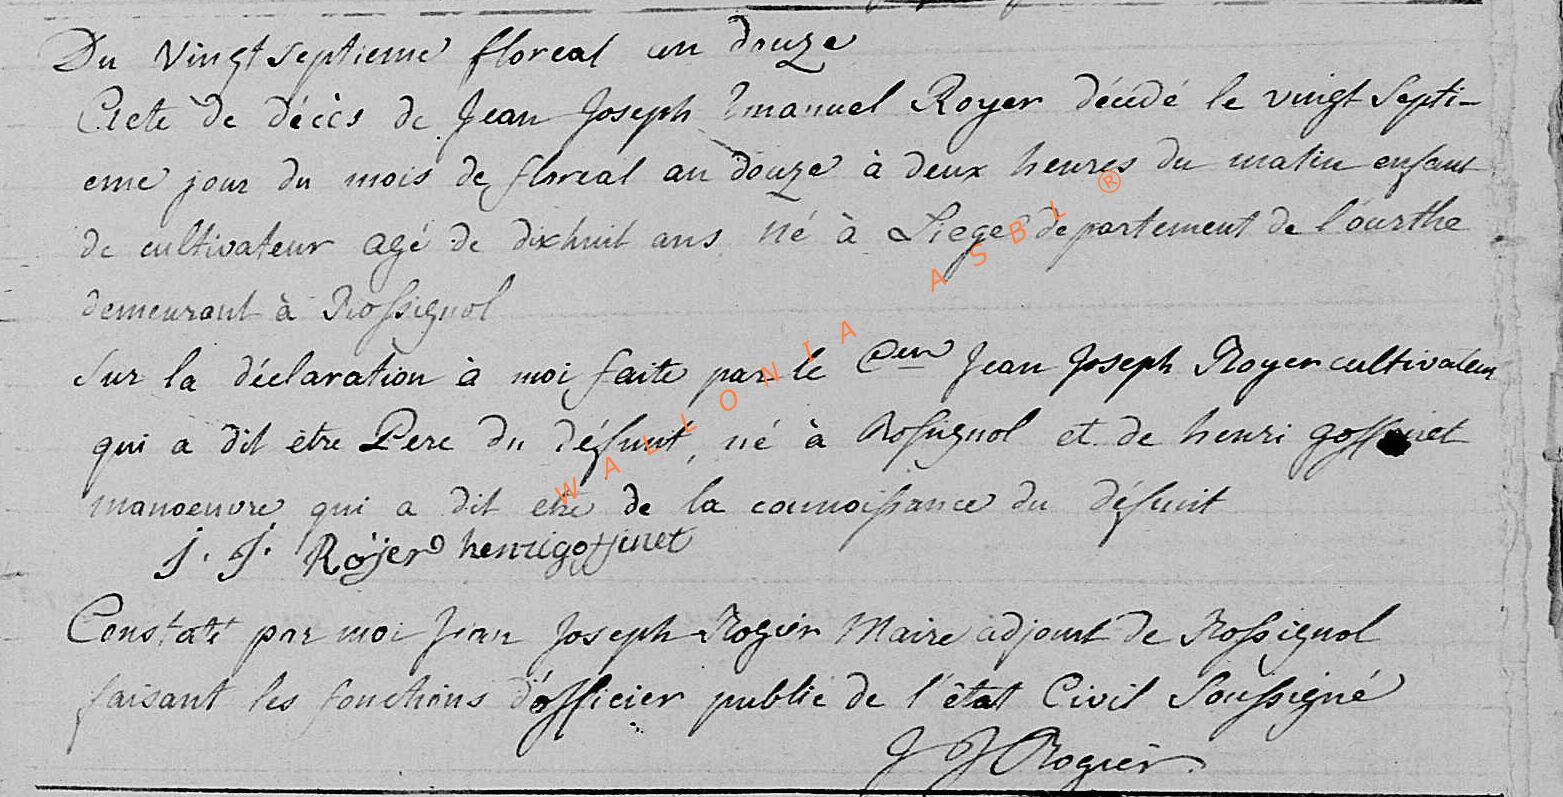 Du vingt septieme floreal an douze
Acte de décès de Jean Joseph Emanuel Royer décédé le vingt septi-
eme jour du mois de floreal an douze à deux heures du matin enfant
de cultivateur agé de dixhuit ans né à Liege departement de l'ourthe
demeurant à Rossignol
sur la déclaration à moi faite par le Cen Jean Joseph Royer cultivateur
qui a dit être Pere du défunt, né à Rossignol et de henri goffinet
manoeuvre qui a dit etre de la connoissance du défunt
j. j. Röjer henrigoffinet
Constaté par moi Jean Joseph Rogier Maire adjoint de Rossignol
faisant les fonctions d'officier public de l'état Civil Soussigné
J J Rogier
WALLONIA ASBL ®